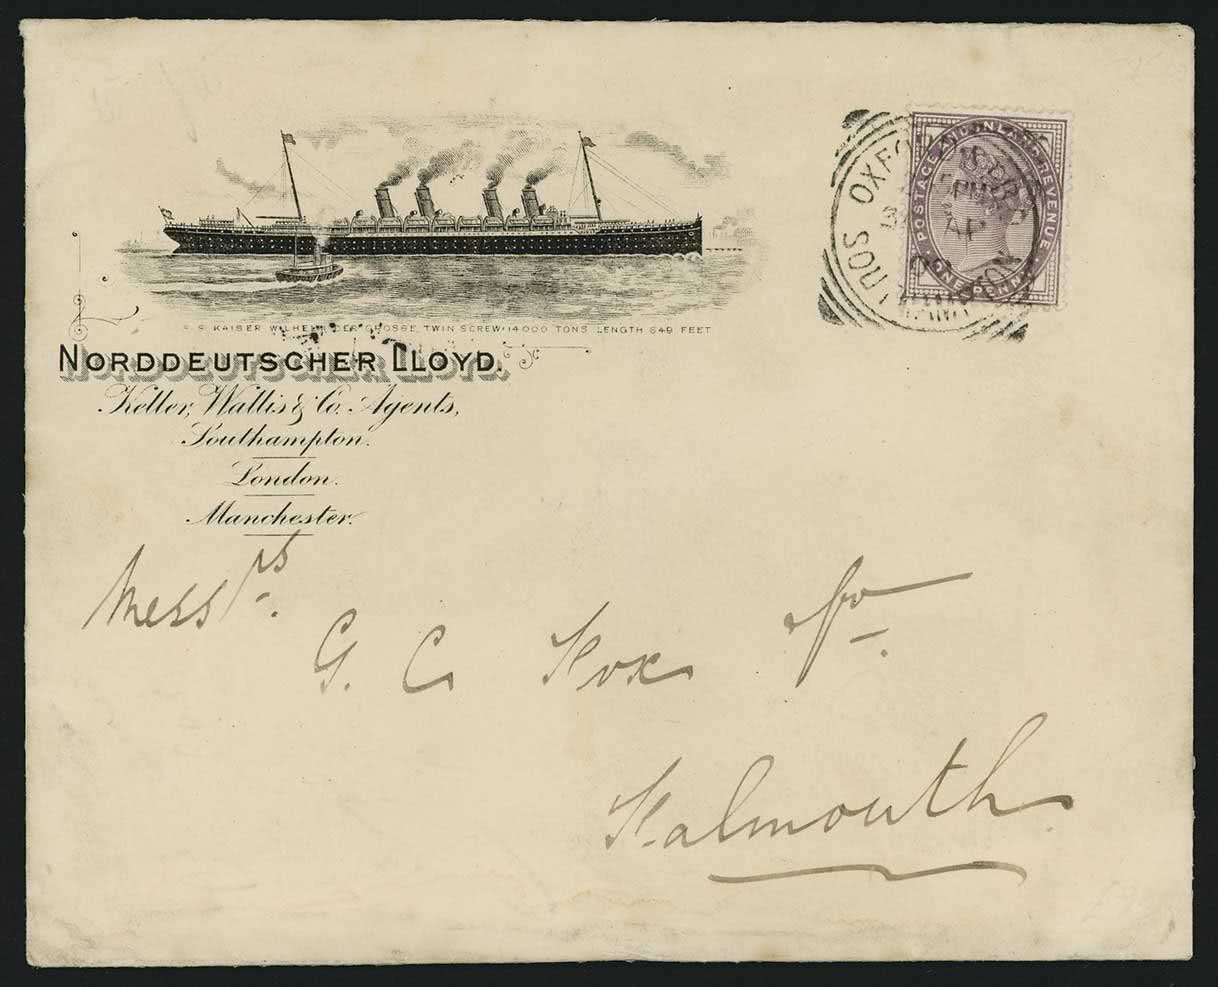 S.S. KAISER WILHELM DER GROSSE, TWIN SCREW. 14000 TONS LENGTH 649 FEET
NORDDEUTSCHER LLOYD.
Keller, Wallis & Co. Agents,
Southampton.
London.
Manchester.
POSTAGE AND INLAND REVENUE
ONE PENNY
OXFORD
SOUTHAMPTON
PM
AP
Messrs.
G. C Fox Co.
Falmouth